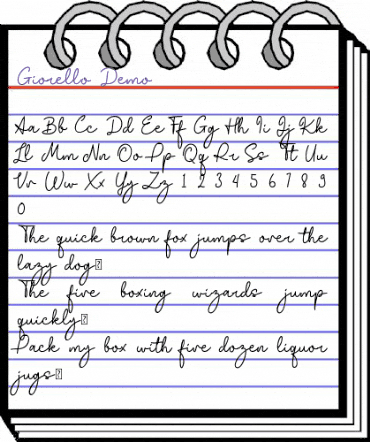 Giorello Demo
Aa Bb Cc Dd Ee Ff Gg Hh Ii Jj Kk
Ll Mm Nn Oo Pp Qq Rr Ss Tt Uu
Vv Ww Xx Yy Zz 1 2 3 4 5 6 7 8 9
0
The quick brown fox jumps over the
lazy dog
The five boxing wizards jump
quickly
Pack my box with five dozen liquor
jugs